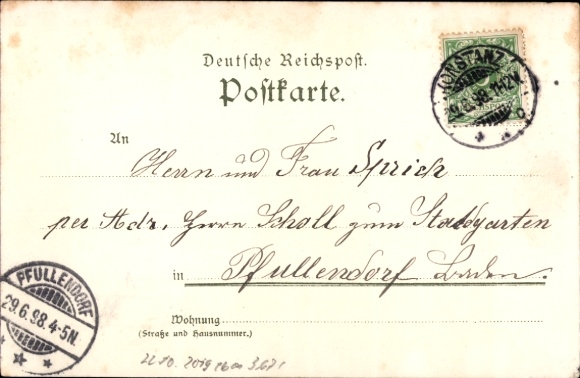 Deutsche Reichspost.
Postkarte.
KONSTANZ
29.6.98.11-12V.
An
Herrn und Frau Sprich
per Adr. Herrn Scholl zum Stadtgarten
in Pfullendorf Baden.
PFULLENDORF
29.6.98.4-5N.
Wohnung
(Straße und Hausnummer.)
22.10. 2019